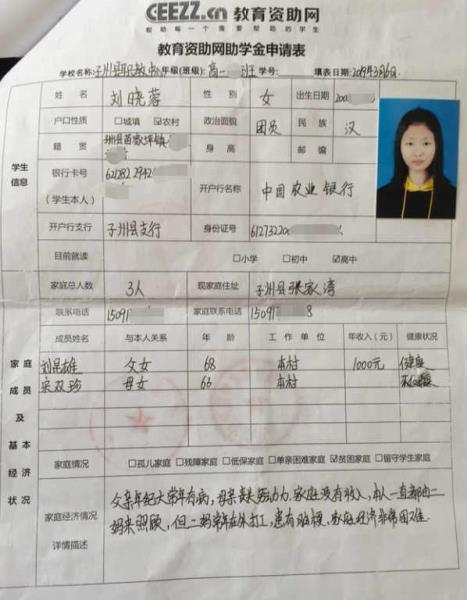 CEEZZ.cn 教育资助网
帮助每一个需要帮助的学生
教育资助网助学金申请表
学校名称: 年级(班级): 高一 班 学号: 填表日期: 2019年3月6日
姓名 刘晓蓉 性别 女 出生日期 200
户口性质 □城填 ☑农村 政治面貌 团员 民族 汉
籍贯 身高 邮编
学生信息
银行卡号(学生本人) 621282 2942 开户行名称 中国农业银行
开户行支行 子州县支行 身份证号 612732200
目前就读 □小学 □初中 ☑高中
家庭总人数 3人 现家庭住址 子州县张家湾
联系电话 15091 家庭联系电话 15091 8
成员姓名 与本人关系 年龄 工作单位 年收入(元) 健康状况
刘昆雄 父女 68 本村 1000元 健康
宋双珍 母女 66 本村
家庭成员及基本经济状况
家庭情况 □孤儿家庭 □残障家庭 □低保家庭 □单亲困难家庭 ☑贫困家庭 □留守学生家庭
家庭经济情况详情描述
父亲年纪大常年有病,母亲丧失劳动力.家庭没有收入,本人一直都由二
妈来照顾,但二妈常年在外打工,患有 家庭经济非常困难.